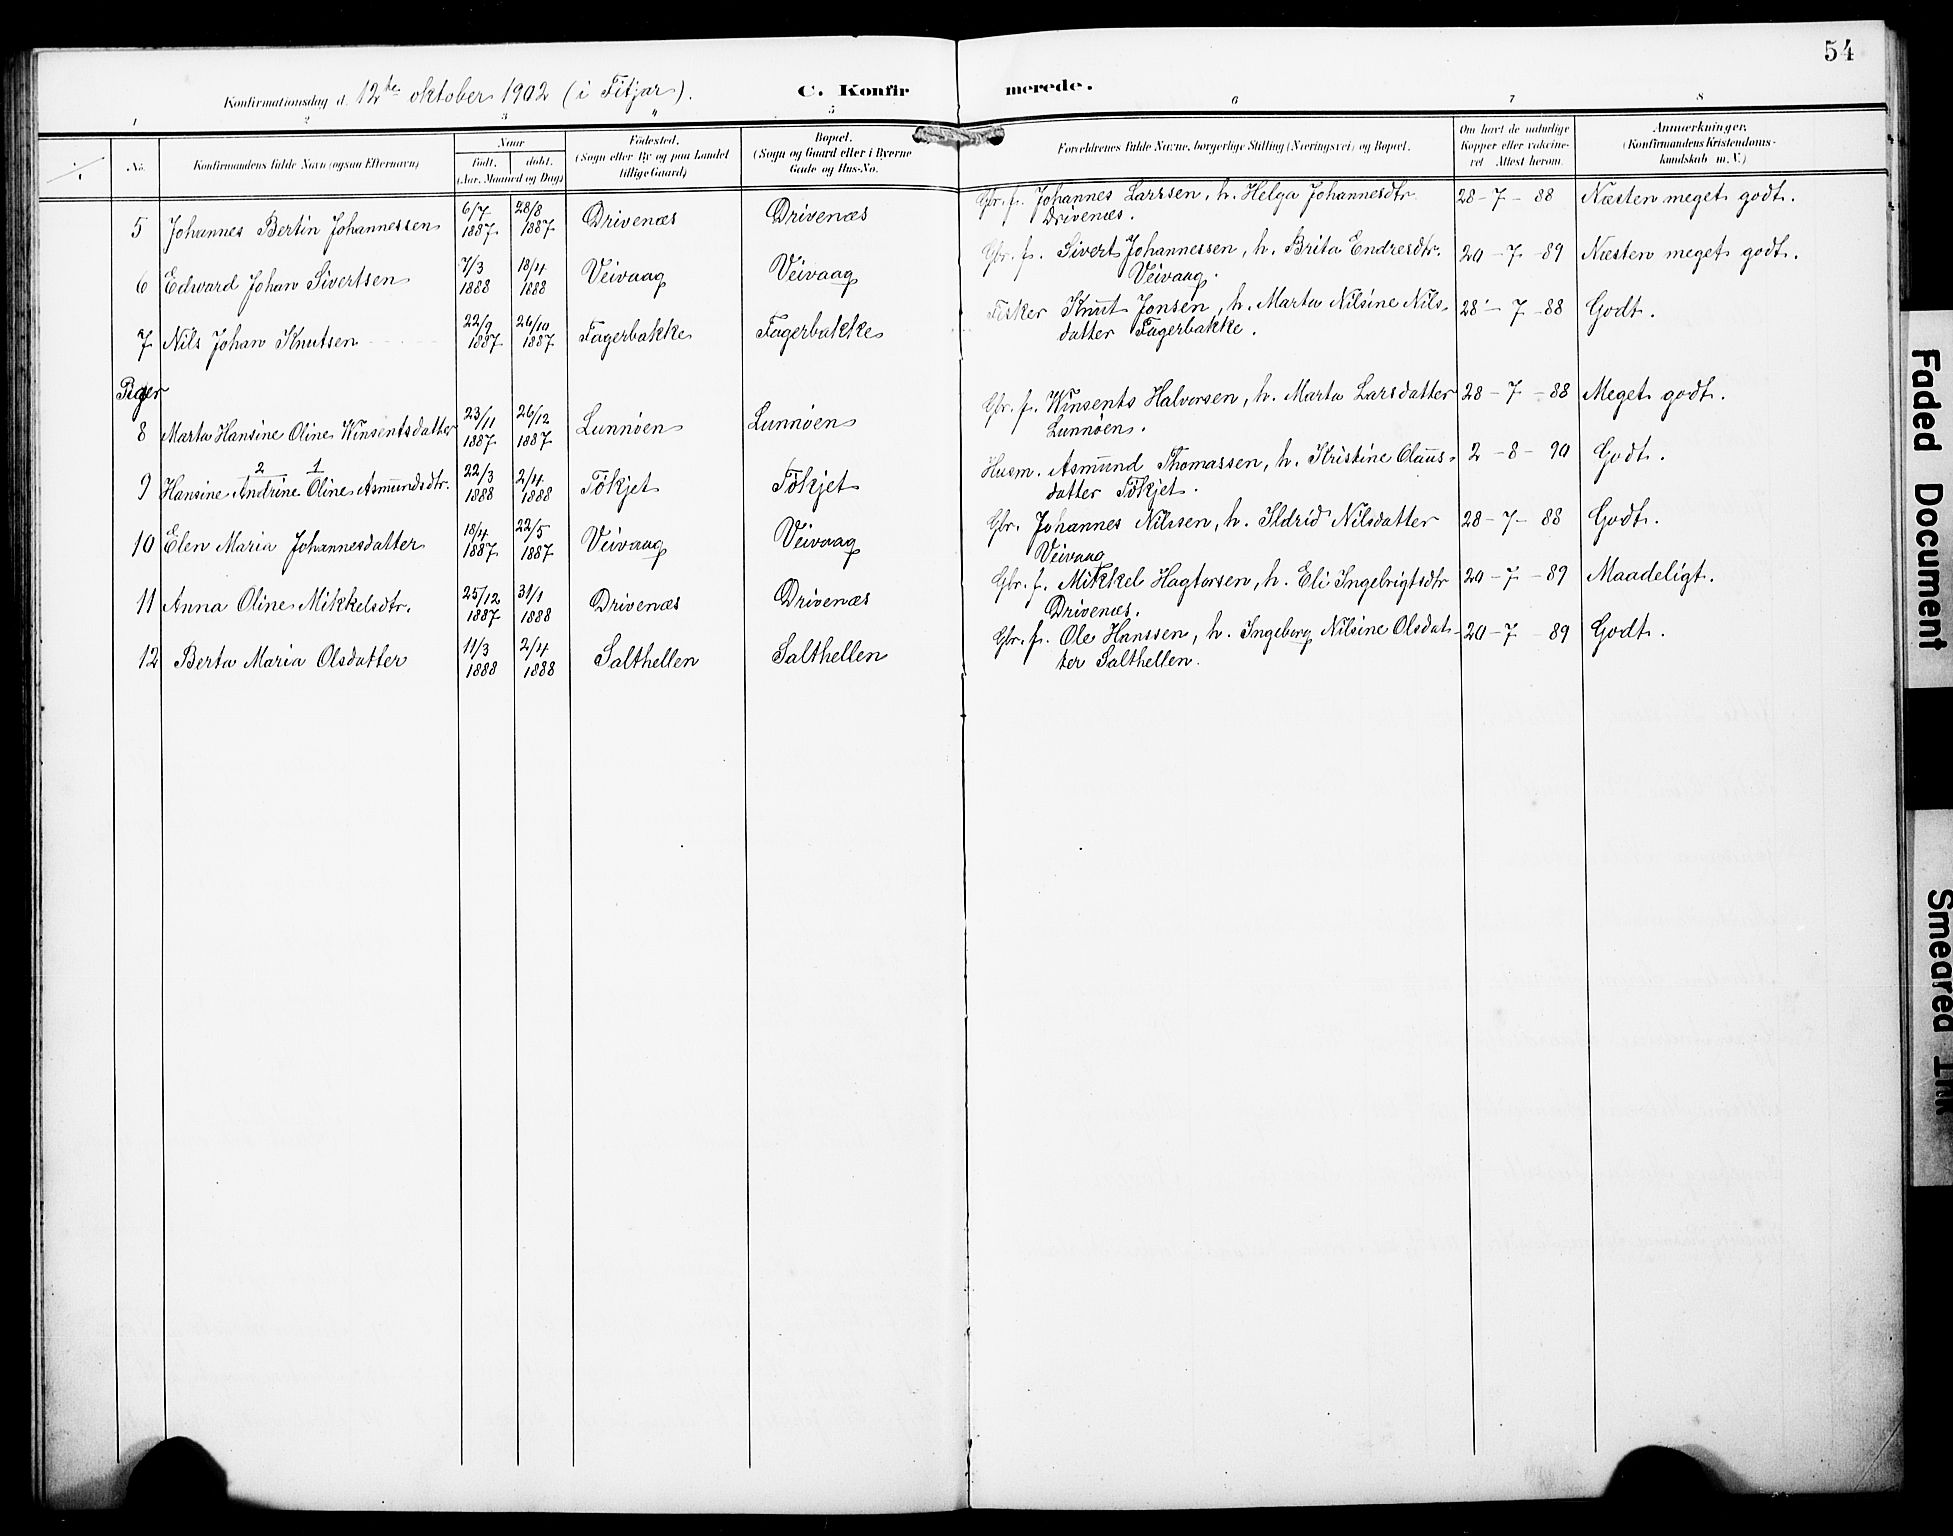 54
Konfirmationsdag d. 12te oktober 1902 (i Fitjar).
C. Konfirmerede.
1 2 3 4 5 6 7 8
No.
Konfirmandens fulde Navn (ogsaa Efternavn)
Naar
født. døbt.
(Aar, Maaned og Dag)
Fødested.
(Sogn eller By og paa Landet
tillige Gaard)
Bopæl.
(Sogn og Gaard eller i Byerne
Gade og Hus-No.
Forældrenes fulde Navne, borgerlige Stilling (Næringsvei) og Bopæl.
Om havt de naturlige
Kopper eller vakcine-
ret Attest herom.
Anmærkninger.
(Konfirmandens Kristendoms-
kundskab m. V.)
5 Johannes Bertin Johannessen 6/7 1887 28/8 1887 Drivenæs Drivenæs Gbr. f. Johannes Larssen, h. Helga Johannesdtr. 28-7-88 Næsten meget godt.
Drivenæs.
6 Edward Johan Sivertsen 7/3 1888 18/4 1888 Veivaag Veivaag Gbr. f. Sivert Johannessen, h. Brita Endresdtr. 20-7-89 Næsten meget godt.
Veivaag.
7 Nils Johan Knutsen 22/9 1887 26/10 1887 Fagerbakke Fagerbakke Fisker Knut Jonsen, h. Marta Nilsine Nils- 28-7-88 Godt.
datter Fagerbakke.
Piger
8 Marta Hansine Oline Winsentsdatter 23/11 1887 26/12 1887 Lunnøen Lunnøen Gbr. f. Winsents Halvorsen, h. Marta Larsdatter 28-7-88 Meget godt.
Lunnøen.
2 1
9 Hansine Andrine Oline Asmundsdtr. 22/3 1888 2/4 1888 Tökjet Tökjet Husm. Asmund Thomassen, h. Kristine Claus- 2-8-90 Godt.
datter Tökjet.
10 Elen Maria Johannesdatter 18/4 1887 22/5 1887 Veivaag Veivaag Gbr. Johannes Nilssen, h. Ildrid Nilsdatter 28-7-88 Godt.
Veivaag
11 Anna Oline Mikkelsdtr. 25/12 1887 31/1 1888 Drivenæs Drivenæs Gbr. f. Mikkel Hagtorsen, h. Eli Ingebrigtsdtr 20-7-89 Maadeligt.
Drivenæs.
12 Berta Maria Olsdatter 11/3 1888 2/4 1888 Salthellen Salthellen Gbr. f. Ole Hanssen, h. Ingeborg Nilsine Olsdat- 20-7-89 Godt.
ter Salthellen.
Faded Document
Smeared Ink